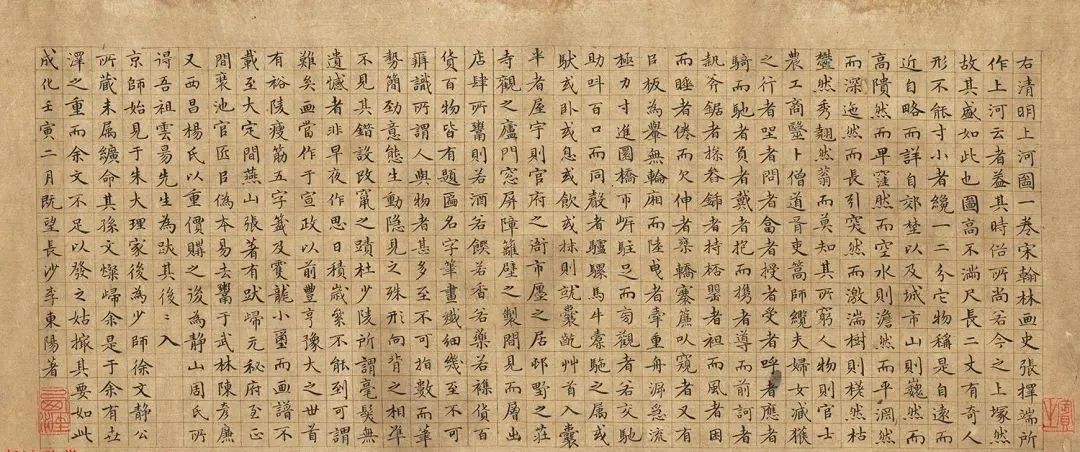 右清明上河圖一卷宋翰林画史張擇端所
作上河云者蓋其時俗所尚若今之上塚然
故其盛如此也圖高不滿尺長二丈有奇人
形不能寸小者纔一二分它物稱是自遠而
近自略而詳自郊埜以及城市山則巍然而
高隤然而卑窪然而空水則澹然而平淵然
而深迤然而長引突然而激湍樹則槎然枯
鬱然秀翹然蓊而莫知其所窮人物則官士
農工商醫卜僧道胥吏篙師纜夫婦女臧獲
之行者坐者問者畣者授者受者呼者應者
騎而馳者負者戴者抱而携者導而前訶者
執斧鋸者操畚鍤者持桮罌者袒而風者困
而睡者倦而欠伸者桒轎褰簾以窺者又有
臣板為轝無輪廂而陸曳者牽重舟泝急流
極力寸進圜橋市岸駐足而旁觀者若交馳
助叫百口而同敲者驢騾馬牛橐駞之属或
馱或卧或息或飲或秣則就囊齕艸首入囊
半者屋宇則官府之衙市廛之居邨野之莊
寺觀之廬門窓屏障籬壁之製間見而層出
店肆所鬻則若酒若饌若香若藥若襍貨百
貨百物皆有題匾名字筆畫纖細幾至不可
辯識所謂人與物者甚多至不可指數而筆
勢簡勁意態生動隱見之殊形向背之相凖
不見其錯設改竄之蹟杜少陵所謂毫髮無
遺憾者非早夜作思日積歲絫不能到可謂
難矣画當作于宣政以前豐亨豫大之世首
有裕陵瘦筋五字籤及雙龍小璽而画譜不
載至大定間燕山張著有跋帰元秘府至正
間裒池官匠臣偽本易去鬻于武林陳彥廉
又西昌楊氏以重價購之後為静山周氏所
得吾祖雲昜先生為跋其後〻入
京師始見于朱大理家後為少師徐文靖公
所藏未属纊命其孫文燦帰余是于余有世
澤之重而余文不足以發之姑摭其要如此
成化壬寅二月既望長沙李東陽著